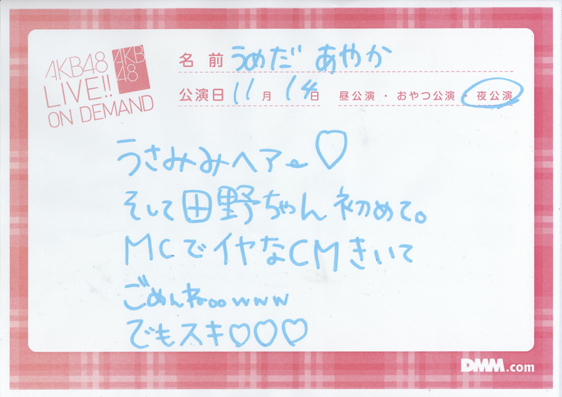 AKB48
LIVE!!
ON DEMAND
AKB
48
名前 うめだ あやか
公演日 11月14日 昼公演・おやつ公演・夜公演
うさみみヘアー♡
そして田野ちゃん初めて。
MCでイヤなCMきいて
ごめんねoowww
でもスキ♡♡♡
DMM.com